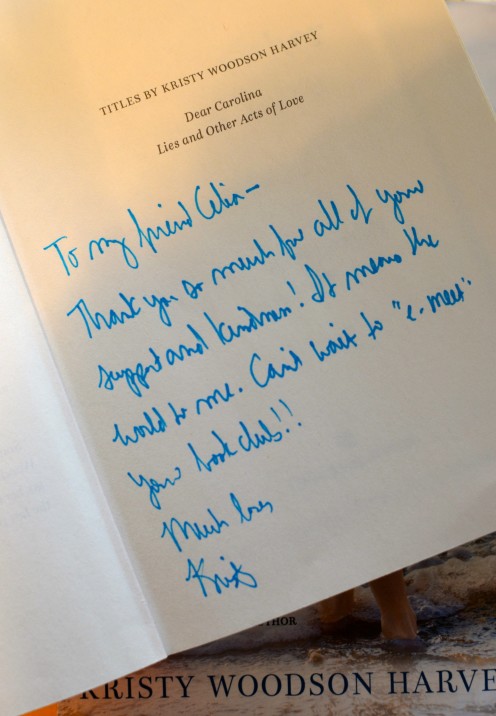 TITLES BY KRISTY WOODSON HARVEY
Dear Carolina
Lies and Other Acts of Love
To my friend Celia—
Thank you so much for all of your
support and kindness! It means the
world to me. Can't wait to "e-meet"
your book club!!
Much love,
Kristy
THOR
KRISTY WOODSON HARVE